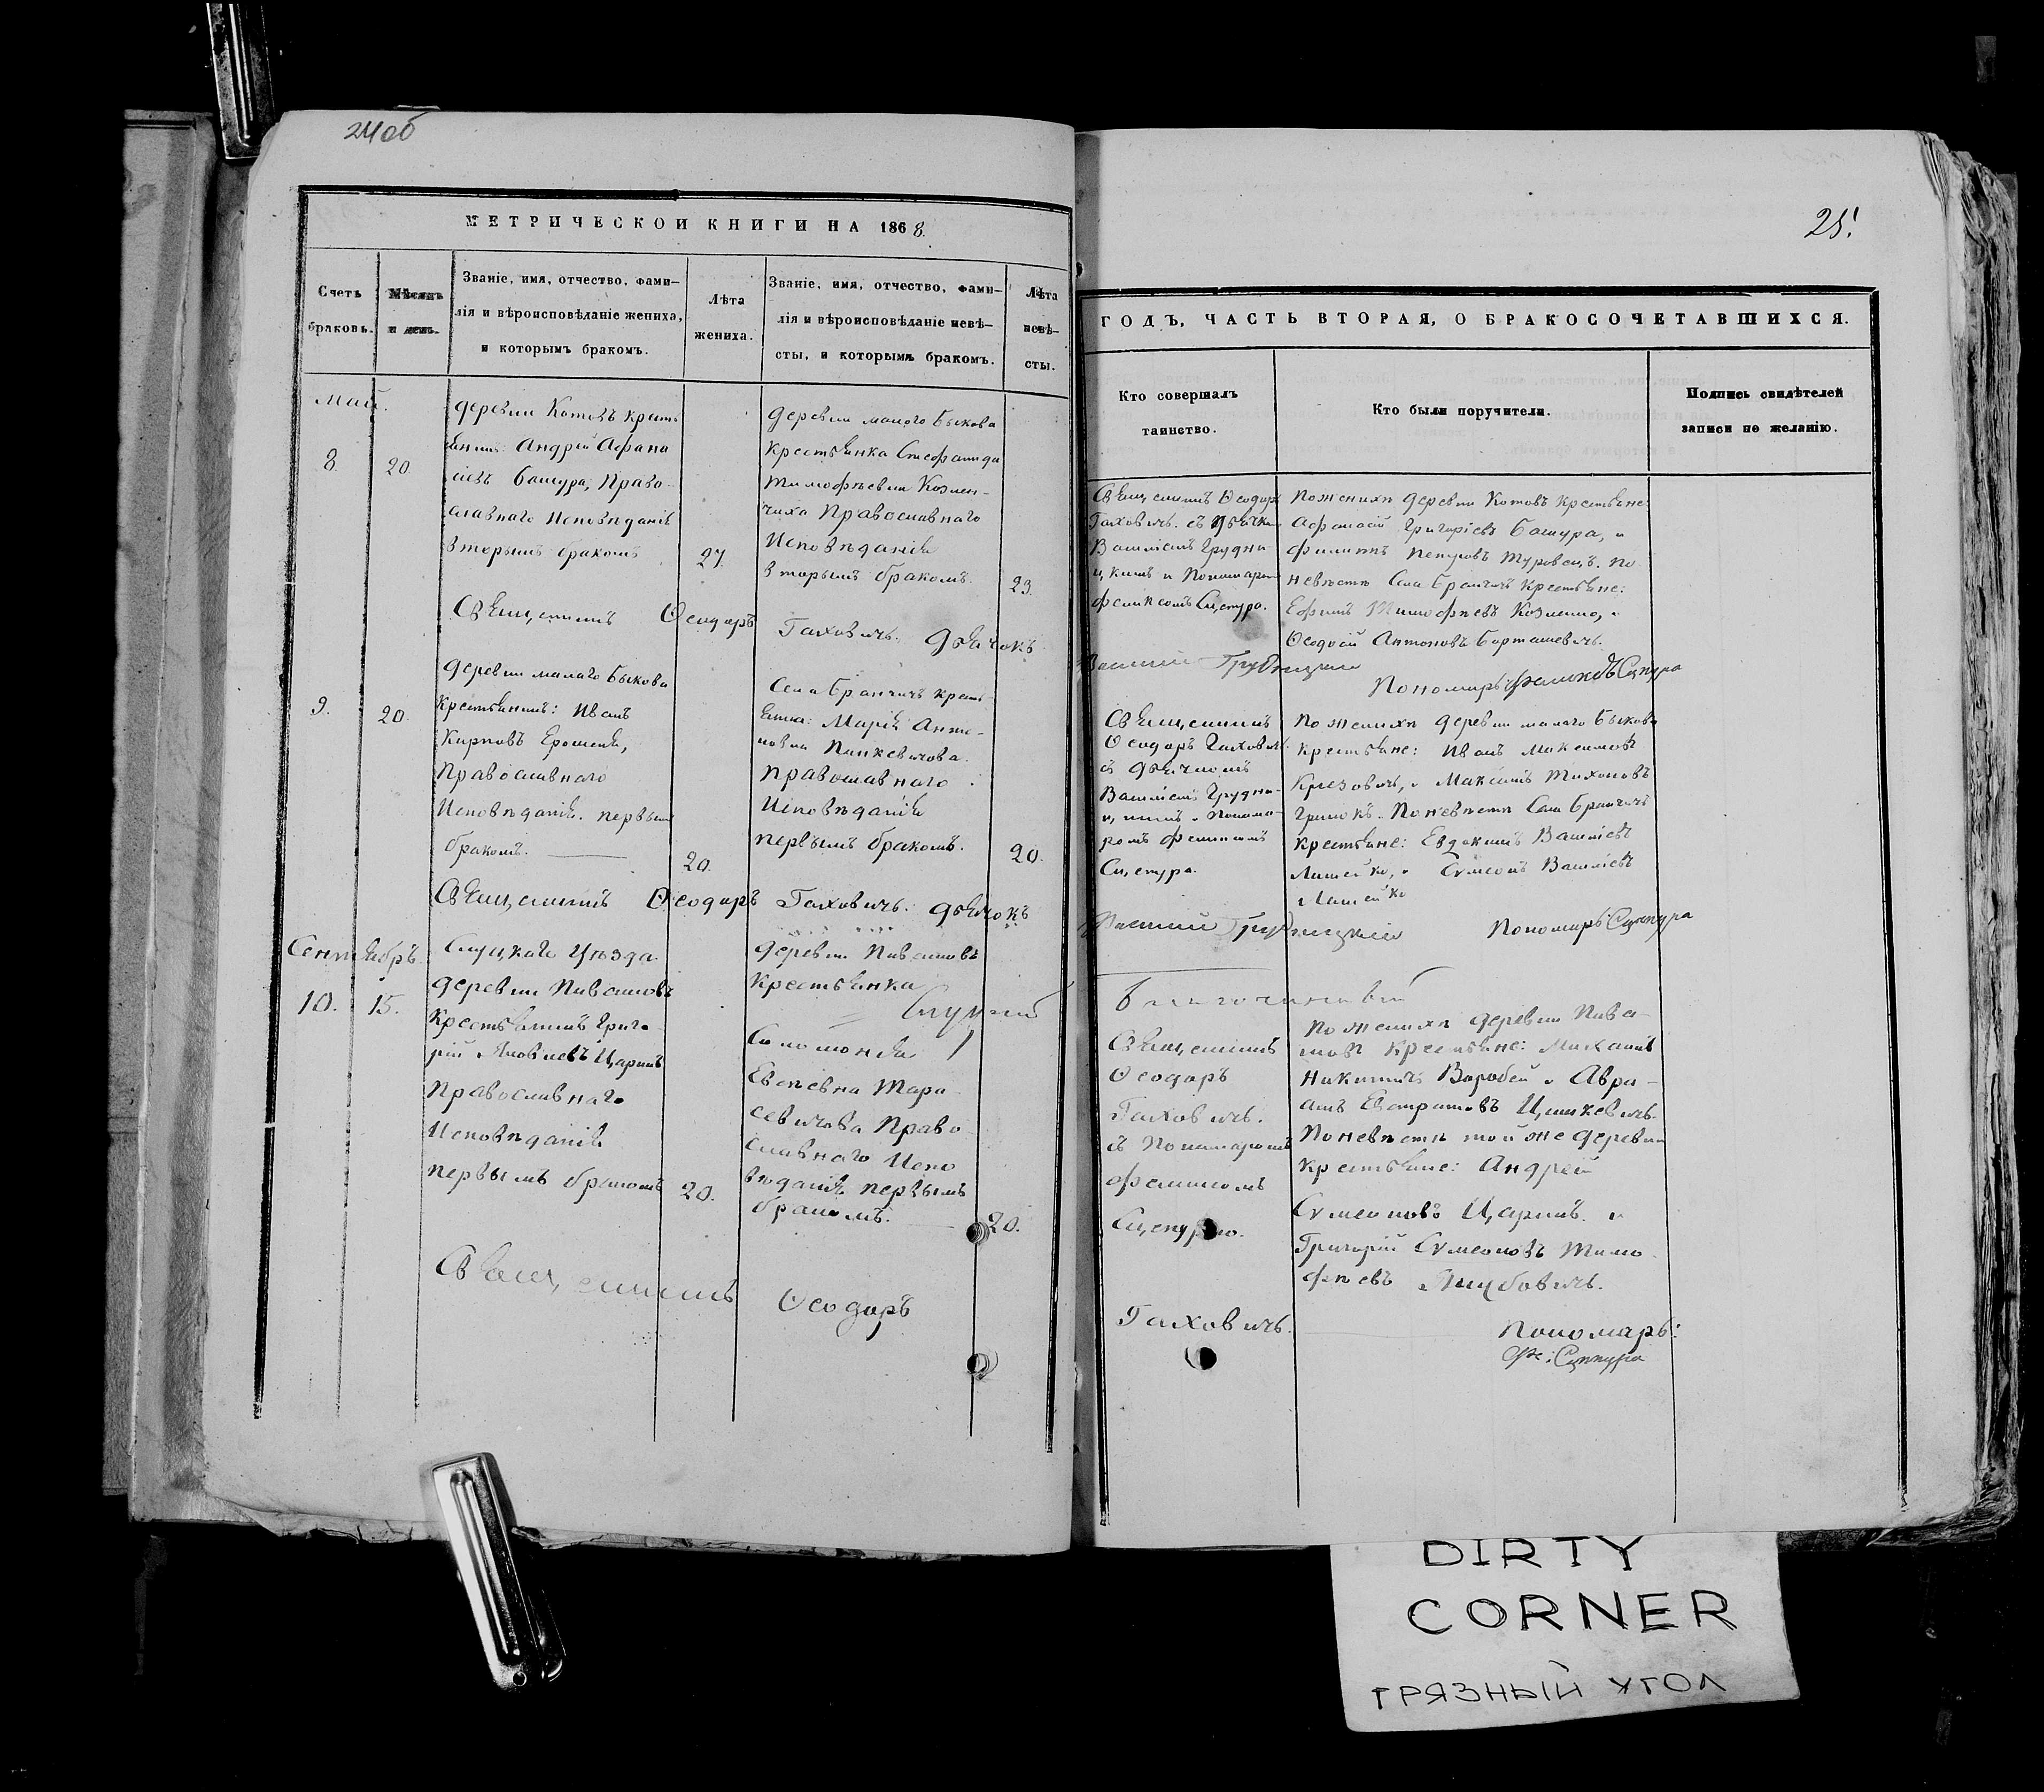 24об
МЕТРИЧЕСКОЙ КНИГИ НА 1868.
Счетъ
браковъ.
Мѣсяцъ
и день.
Званіе, имя, отчество, фами-
лія и вѣроисповѣданіе жениха,
и которымъ бракомъ.
Лѣта
жениха.
Званіе, имя, отчество, фами-
лія и вѣроисповѣданіе невѣ-
сты, и которымъ бракомъ.
Лѣта
невѣ-
сты.
Май.
8.
20
деревни Котовъ кресть
янинъ: Андрей Афана
сіевъ Башура, Право-
славнаго Исповѣданія
вторымъ бракомъ
27.
деревни малого Быкова
крестьянка Стефанида
Тимофѣевна Козмен-
чиха Православнаго
Исповѣданія
вторымъ бракомъ.
23.
Священникъ Ѳеодоръ Гаховичъ. Дьячокъ
9.
20.
деревни малаго Быкова
крестьянинъ: Иванъ
Карповъ Ерошеня,
Православнаго
Исповѣданія. первым
бракомъ.
20.
Села Бранчичъ кресть
янка: Марія Анто-
новна Пинкевичова.
православнаго
Исповѣданія
первымъ бракомъ.
20.
Священникъ Ѳеодоръ Гаховичъ: дьячокъ
Сентябрь.
10.
15.
Слуцкаго Уѣзда
деревни Пивашовъ
Крестьянинъ Григо
рій Яковлевъ Царикъ
Православнаго
Исповѣданія
первымъ бракомъ
20.
деревни Пивашовъ
крестьянка
Слуцкій
Соломонія
Евсеевна Тара
севичова Право
славнаго Испо
вѣданія первымъ
бракомъ.
20.
Священникъ Ѳеодоръ
25.
ГОДЪ, ЧАСТЬ ВТОРАЯ, О БРАКОСОЧЕТАВШИХСЯ.
Кто совершалъ
таинство.
Кто были поручители.
Подпись свидѣтелей
записи по желанію.
Священникъ Ѳеодоръ
Гаховичъ. съ дьячко
Василіемъ Грудни-
цкимъ и Пономаремъ
Феликсомъ Сцепуро.
По женихѣ деревни Котовъ Крестьяне:
Афанасій Григоріевъ Башура, и
Филиппъ Петровъ Туровецъ. По
невѣстѣ Села Бранчичъ Крестьяне:
Ефимъ Тимофѣевъ Козленко, и
Ѳеодосій Антоновъ Барташевичъ.
Василій Грудницкій
Пономарь: Феликсъ Сцепура
Священникъ
Ѳеодоръ Гаховичъ
съ дьячкомъ
Василіемъ Грудни-
цкимъ и Понома-
ремъ Феликсомъ
Сцепуро.
По женихѣ деревни малаго Быкова
крестьяне: Иванъ Максимовъ
и Максимъ Тихоновъ
Гринокъ. По невѣстѣ Села Бранчичъ
крестьяне: Евдокимъ Василіевъ
Лашейко, и Сѵмеонъ Василіевъ
Лашейко
Василій Грудницкій
Пономарь: Сцепура
Благочинный
Священникъ
Ѳеодоръ
Гаховичъ.
съ Пономаремъ
Феликсомъ
Сцепуро.
По женихѣ деревни Пива-
шовъ Крестьяне: Михаилъ
Никитичъ Воробей и Авра-
амъ Евстратовъ Цишкевичъ.
По невѣстѣ той же деревни
крестьяне: Андрей
Сѵмеоновъ Царикъ. и
Григорій Сѵмеоновъ Тимо
фѣевъ Якубовичъ.
Гаховичъ.
Пономарь:
Фе: Сцепура
DIRTY
CORNER
ГРЯЗНЫЙ УГОЛ